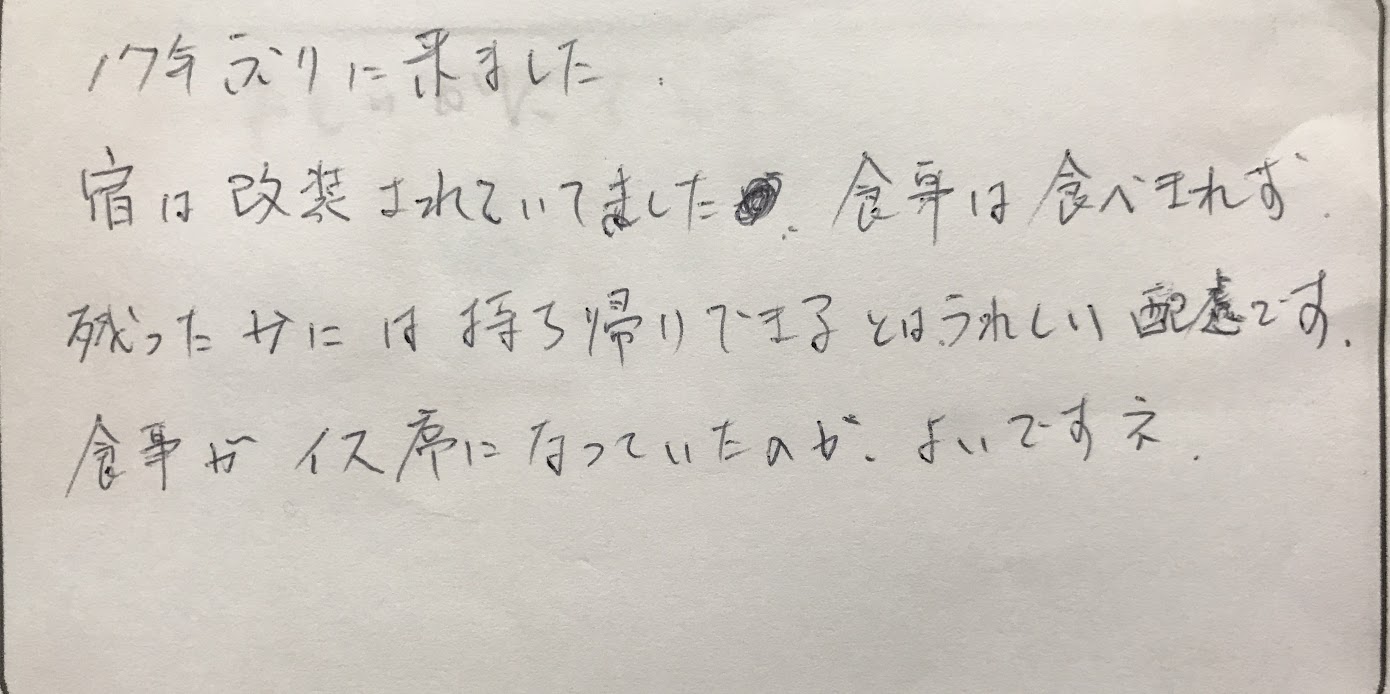 17年ぶりに来ました.
宿は改装されていてました. 食事は食べきれず.
残ったカには持ち帰りできるとは、うれしい配慮です.
食事がイス席になっていたのが、よいですネ.